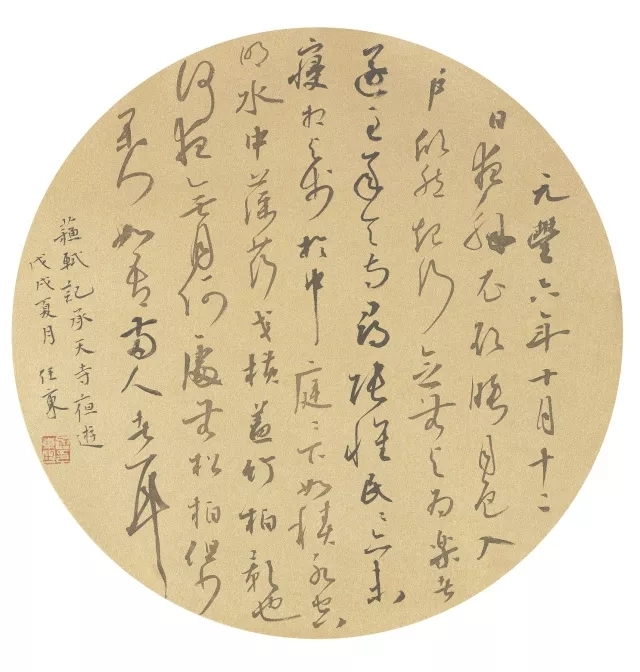 元豐六年十月十二
日夜解衣欲睡月色入
户欣然起行念無与為樂者
遂至承天寺尋張懷民〻亦未
寢相与步於中庭〻下如積水空
明水中藻荇交橫蓋竹柏影也
何夜無月何處無松柏但少
閑人如吾兩人者耳
蘇軾記承天寺夜遊
戊戌夏月 任東